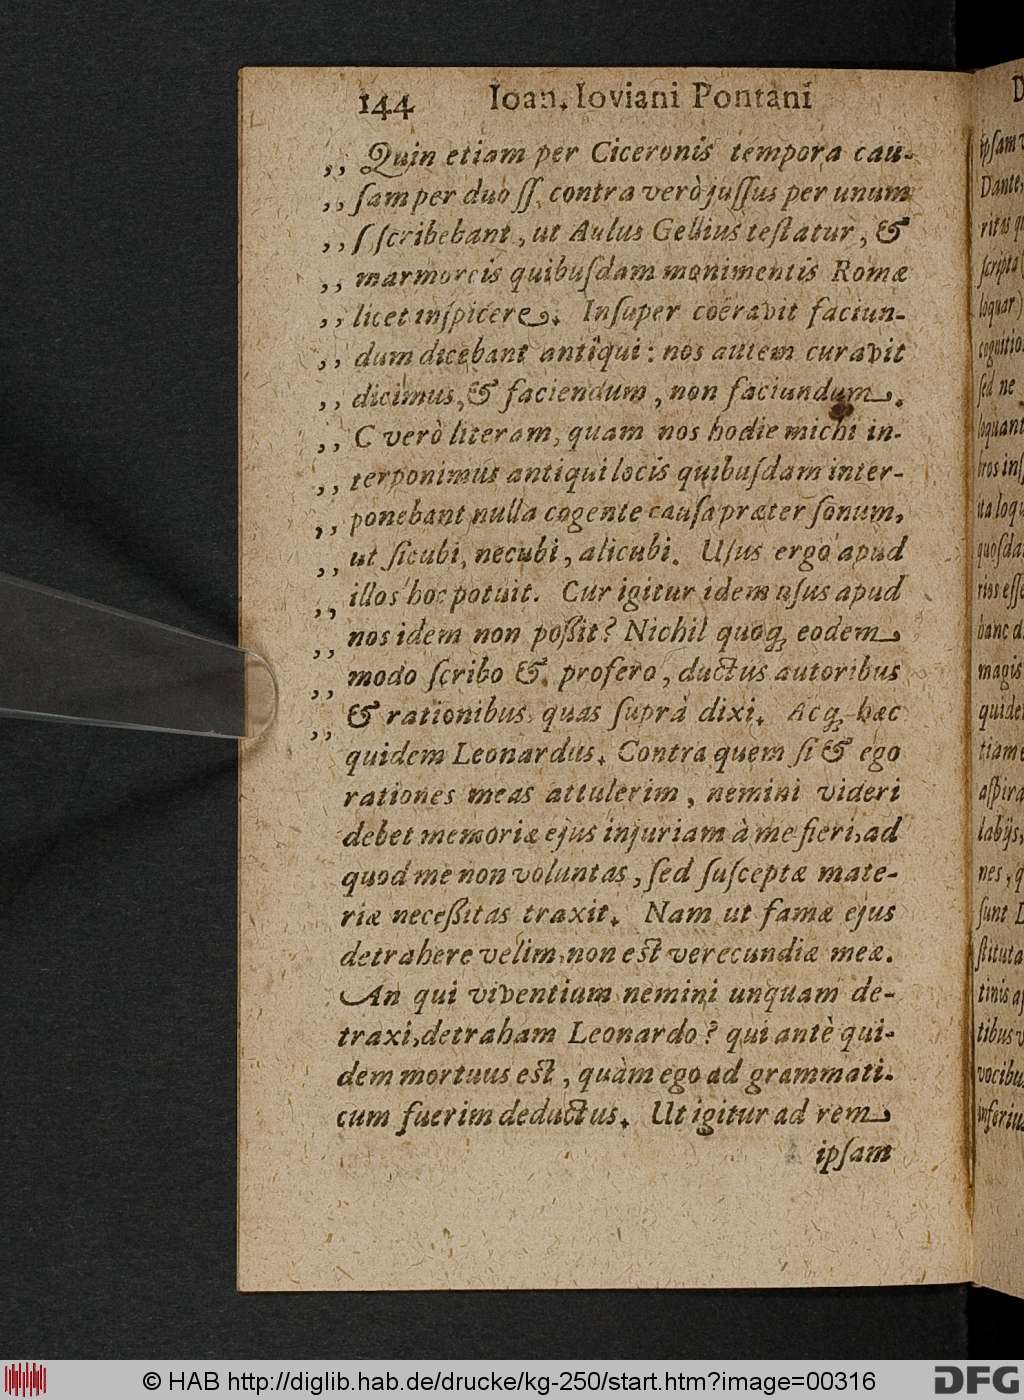 144 Ioan. Ioviani Pontani
,, Quin etiam per Ciceronis tempora cau-
,, ſam per duo ſſ, contra verò juſſus per unum
,, ſ ſcribebant, ut Aulus Gellius teſtatur, &
,, marmoreis quibuſdam monimentis Romæ
,, licet inſpicere. Inſuper coëravit faciun-
,, dum dicebant antiqui: nos autem curavit
,, dicimus, & faciendum, non faciundum.
,, C verò literam, quam nos hodie michi in-
,, terponimus antiqui locis quibuſdam inter-
,, ponebant nulla cogente cauſa præter ſonum,
,, ut ſicubi, necubi, alicubi. Uſus ergo apud
,, illos hoc potuit. Cur igitur idem uſus apud
,, nos idem non poſſit? Nichil quoq; eodem
,, modo ſcribo & profero, ductus autoribus
,, & rationibus, quas ſuprà dixi. Acq; hæc
quidem Leonardus. Contra quem ſi & ego
rationes meas attulerim, nemini videri
debet memoriæ ejus injuriam à me fieri, ad
quod me non voluntas, ſed ſuſceptæ mate-
riæ neceſſitas traxit. Nam ut famæ ejus
detrahere velim, non eſt verecundiæ meæ.
An qui viventium nemini unquam de-
traxi, detraham Leonardo? qui antè qui-
dem mortuus eſt, quàm ego ad grammati-
cum fuerim deductus. Ut igitur ad rem
ipſam
ipſam
Dante,
ſcripta
loquar
ſed ne
© HAB http://diglib.hab.de/drucke/kg-250/start.htm?image=00316
DFG